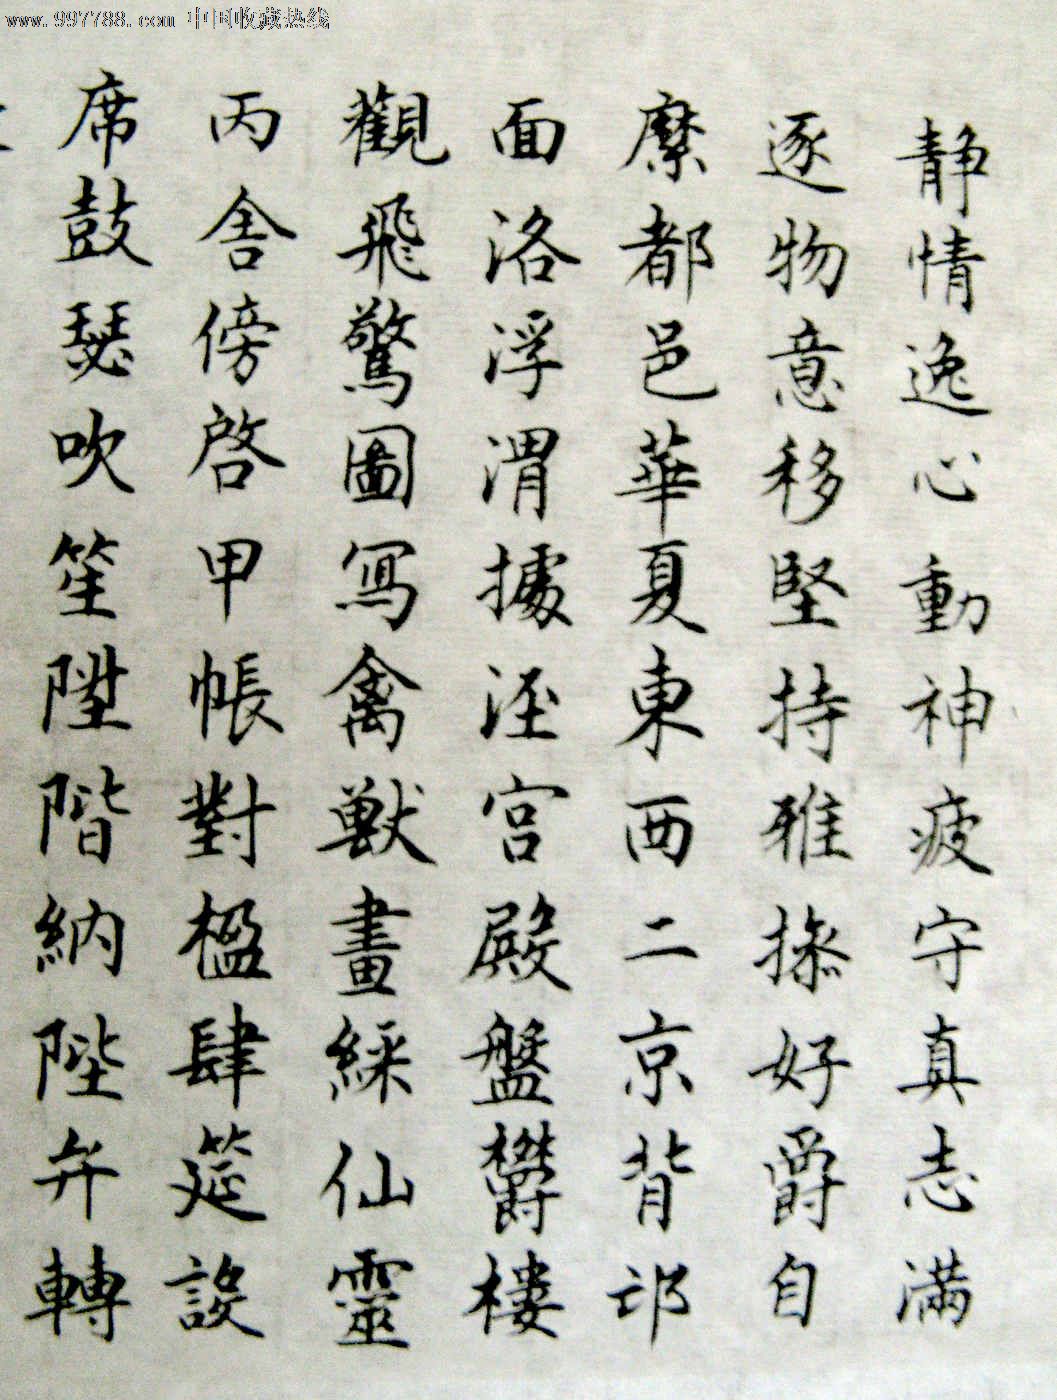 www.997788.com 中国收藏热线
静情逸心動神疲守真志满
逐物意移堅持雅操好爵自
縻都邑華夏東西二京背邙
面洛浮渭據涇宫殿盤欝樓
觀飛驚圖寫禽獸畫綵仙靈
丙舍傍啓甲帳對楹肆筵設
席鼓瑟吹笙陞階納陛弁轉